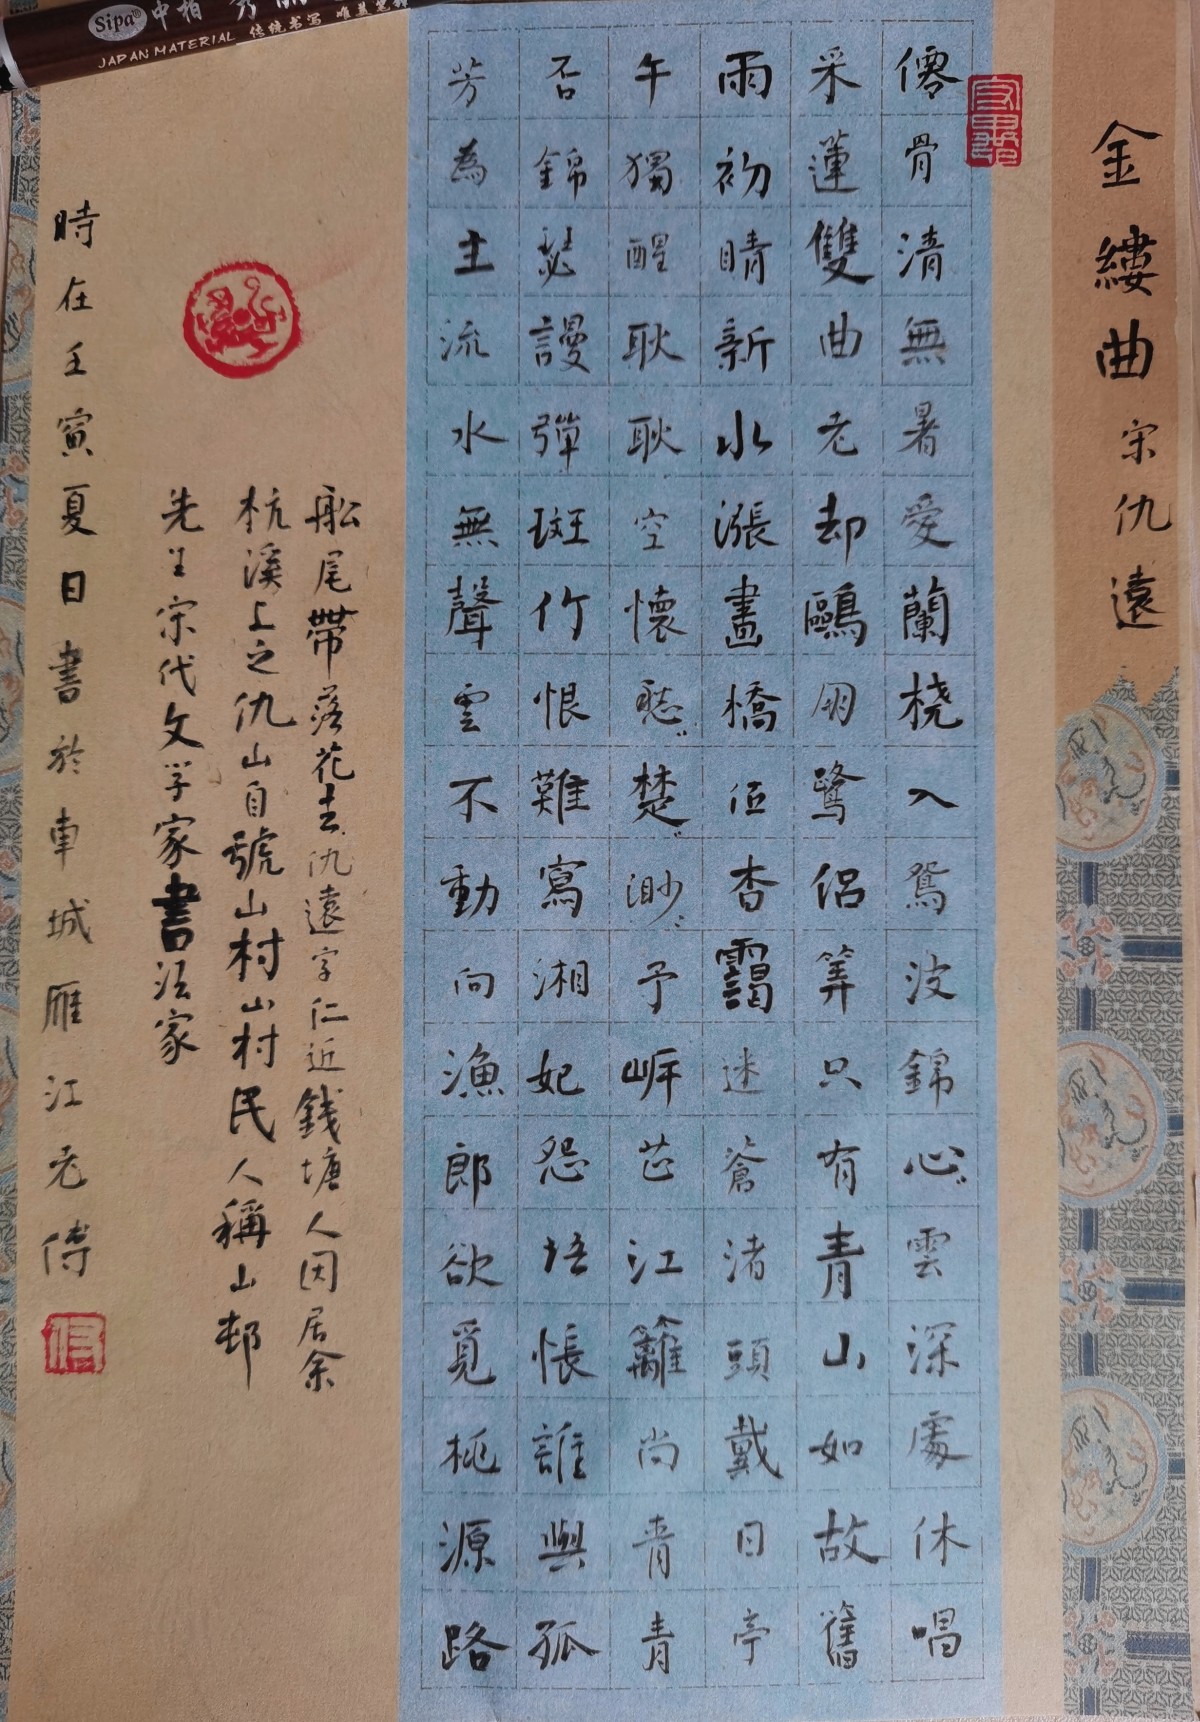 Sipa® 中柏 秀丽
JAPAN MATERIAL 传统书写 唯美笔锋
金縷曲 宋仇遠
僊骨清無暑愛蘭橈入鴛波錦心〻雲深處休唱
采蓮雙曲老却鷗朋鷺侶筭只有青山如故舊
雨初晴新水漲畫橋低杳靄迷蒼渚頭戴日亭
午獨醒耿耿空懷愁〻楚〻渺〻予岍芷江蘺尚青青
否錦瑟謾彈斑竹恨難寫湘妃怨语悵誰與孤
芳為主流水無聲雲不動向漁郎欲覓桃源路
船尾帶落花去仇遠字仁近錢塘人因居余
杭溪上之仇山自號山村山村民人稱山邨
先生宋代文学家書法家
時在壬寅夏日書於車城雁江老傅